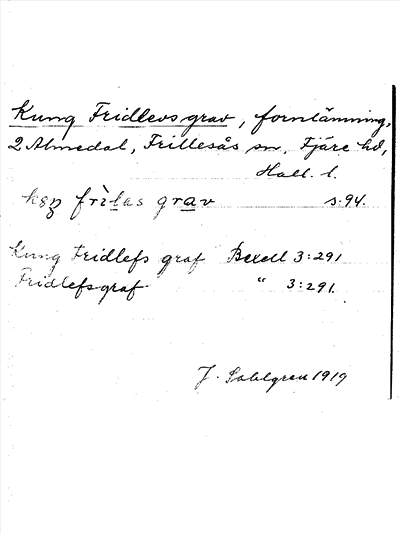 Kung Fridlevs grav, fornlämning,
2 Almedal, Frillesås sn, Fjäre hd,
Hall. l.
frìlas grav s. 94.
Kung Fridlefs graf Bexell 3:291
Fridlefsgraf. " 3:291.
J. Sahlgren 1919